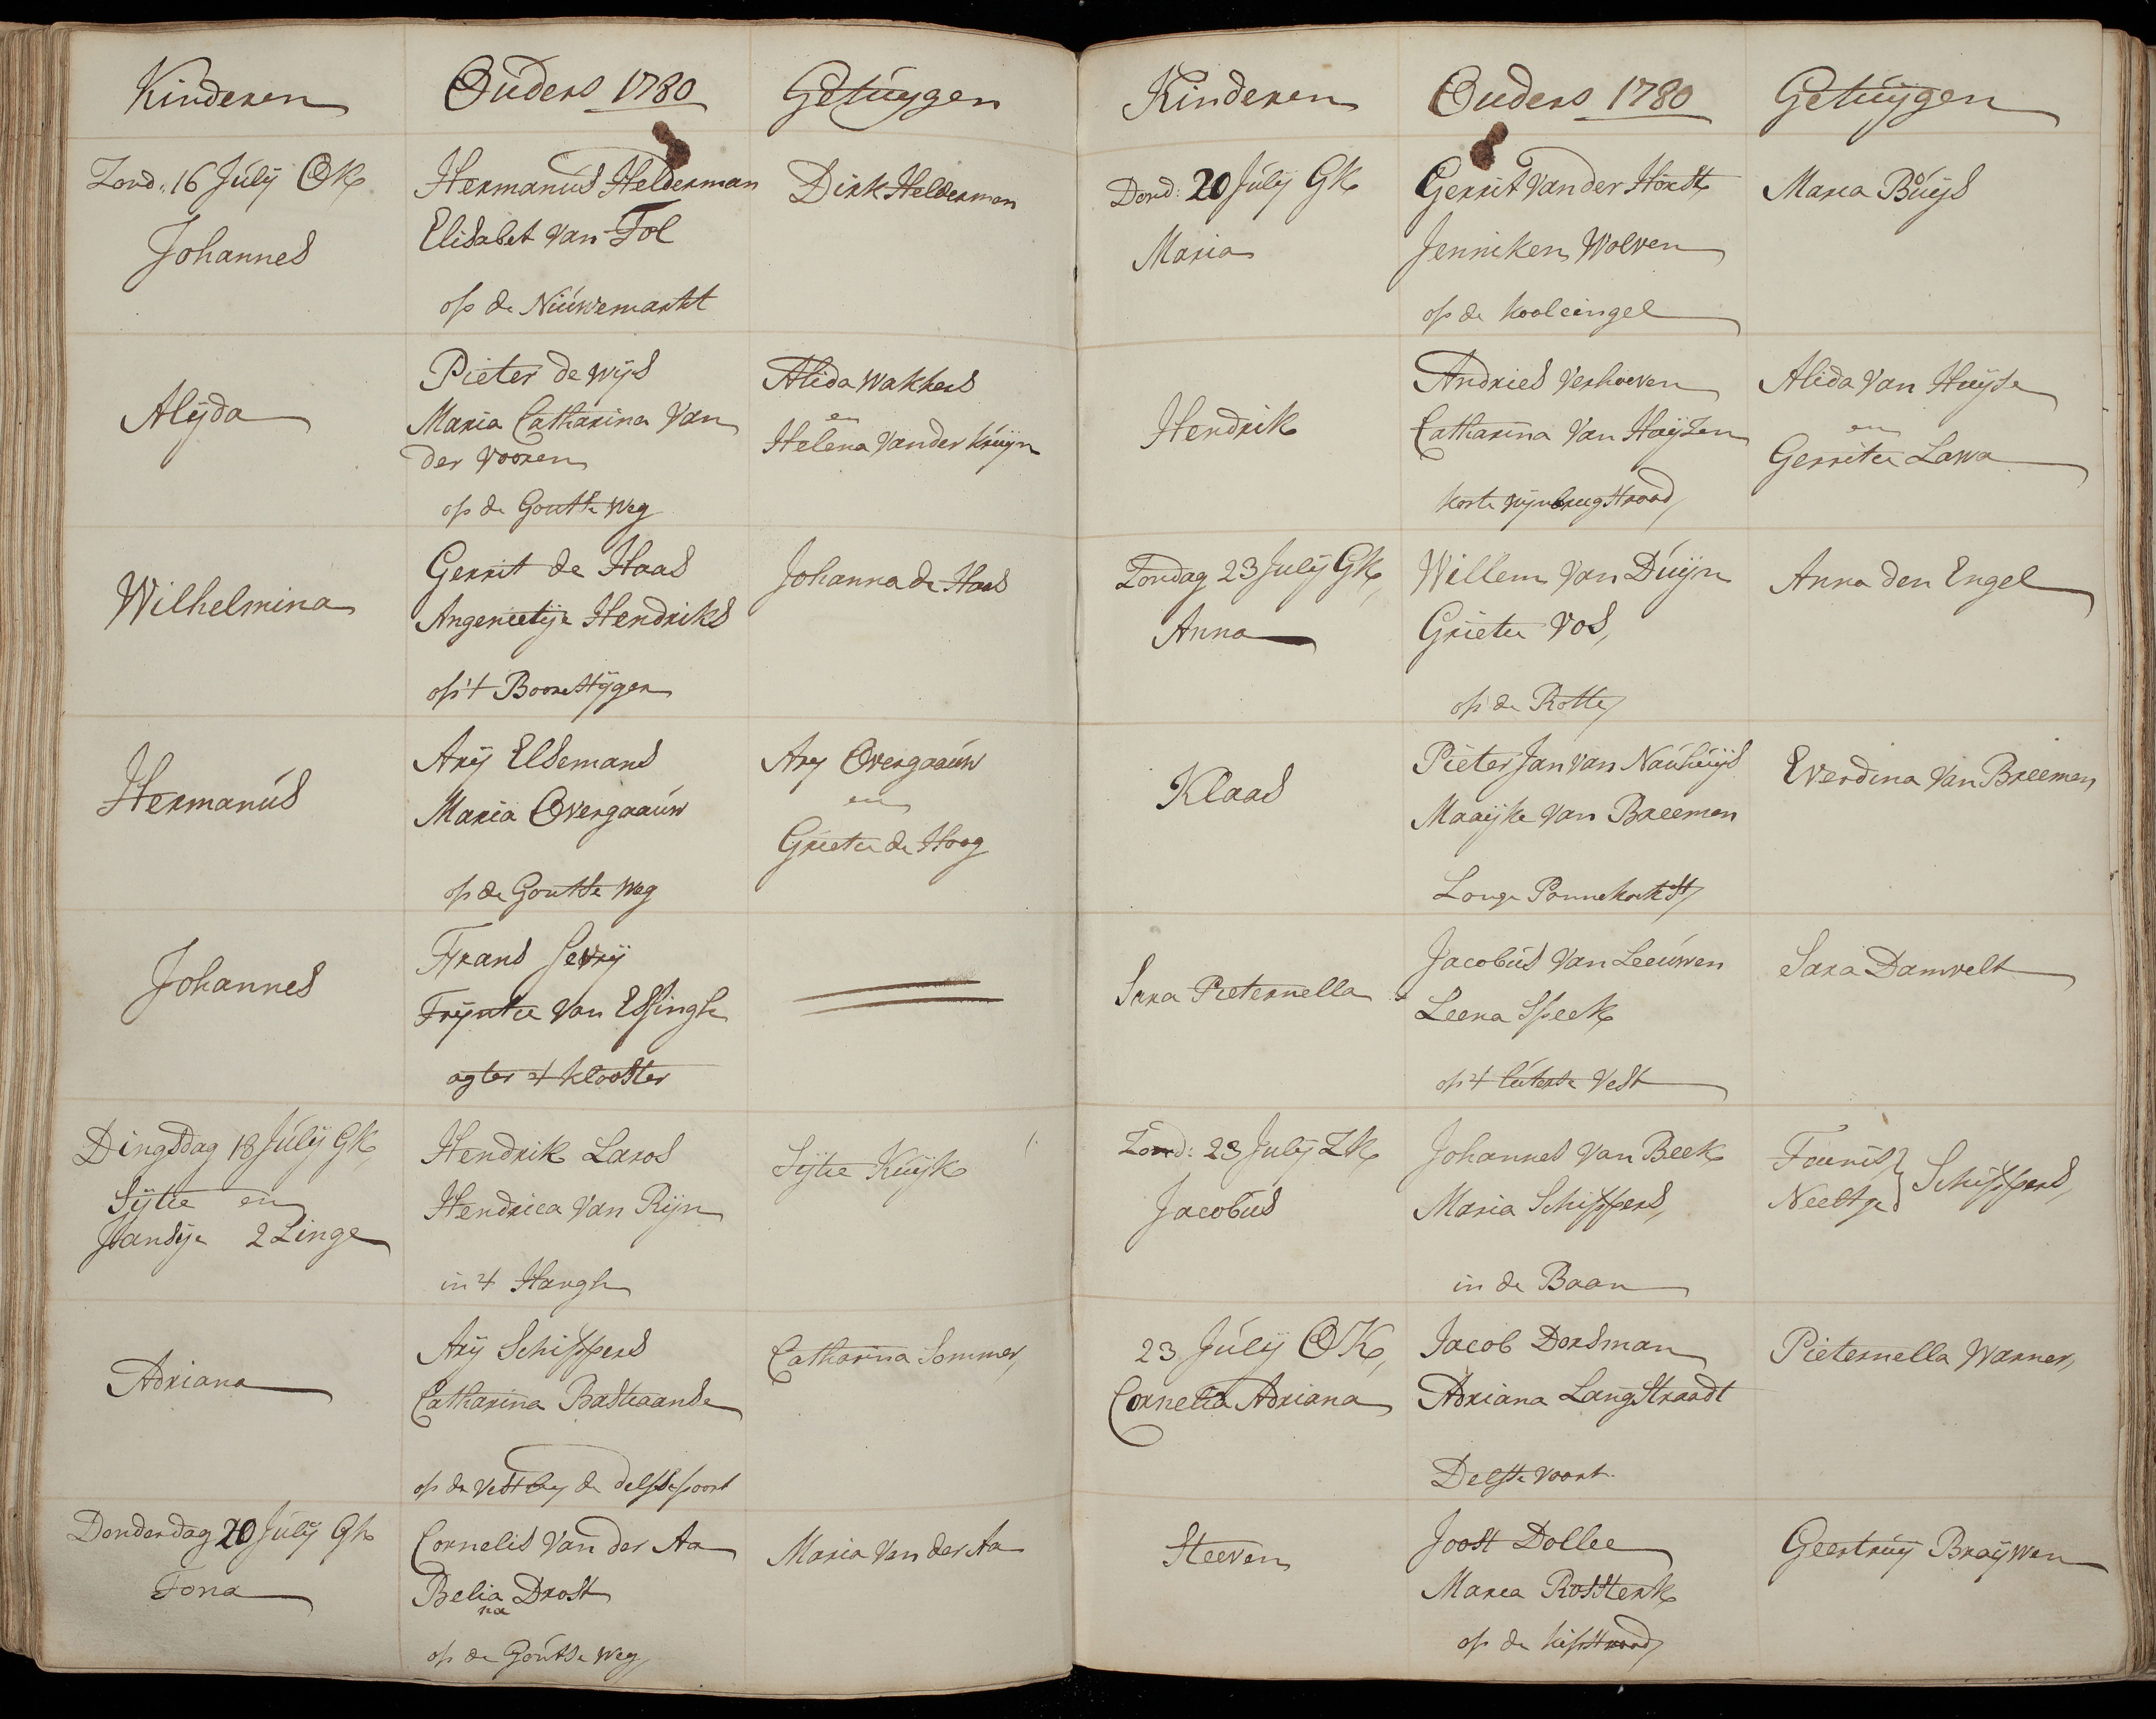 Kinderen
Ouders 1780
Getuygen
Zond. 16 Julÿ OK
Johannes
Hermanus Helderman
Elisabet van Tol
op de Nieuwemarkt
Dirk Helderman
Alÿda
Pieter de Wÿs
Maria Catharina Van
der Vooren
op de Goutse Weg
Alida Wakkers
en
Helena Vander Kruyn
Wilhelmina
Gerrit de Haas
Angenietje Hendriks
op 't Boerestÿger
Johanna de Haas
Hermanus
Arÿ Elsemans
Maria Overgaauw
op de Goutse Weg
Ary Overgaauw
en
Grietie de Hoog
Johannes
Frans
Tryntie Van Essingh
agter 't Klooster
Dingsdag 18 Julÿ GK
Sÿtie en
Jansje 2 Linge
Hendrik Laros
Hendrica Van Rÿn
in 't Hangh
Sÿtie Kuÿk
Adriana
Arÿ Schippers
Catharina Bastiaanse
op de Vest by de delfsepoort
Catharina Sommer
Donderdag 20 Julÿ Gk
Tona
Cornelis Van der Aa
Belia Drost
na
op de Goutse Weg
Maria Van der Aa
Kinderen
Ouders 1780
Getuÿgen
Dond: 20 Julÿ GK
Maria
Gerrit Van der Horst
Jenneken Wolven
op de Koolcingel
Maria Buÿs
Hendrik
Andries Verhoeven
Catharina Van Huÿzen
korte Wynbrugstraad
Alida Van Huyse
en
Gerritie Lawa
Zondag 23 Julÿ GK
Anna
Willem Van Duÿn
Grietie Vos
op de Rotte
Anna den Engel
Klaas
Pieter Jan van Nauhuÿs
Maaÿke Van Breemen
Lange Pannekoekst
Everdina Van Breemen
Sara Pieternella
Jacobus Van Leeuwen
Leena Speek
op 't Vest
Sara Damvelt
Zond: 23 Julÿ ZK
Jacobus
Johannes Van Beek
Maria Schippers
in de Baan
Teunis
Neeltje
Schippers
23 Julÿ OK
Cornelia Adriana
Jacob Dorsman
Adriana Langstraadt
Delfse Vaart
Pieternella Warner
Steeven
Joost Dollee
Maria Rossterk
op de kipstraad
Geertruÿ Braÿwen